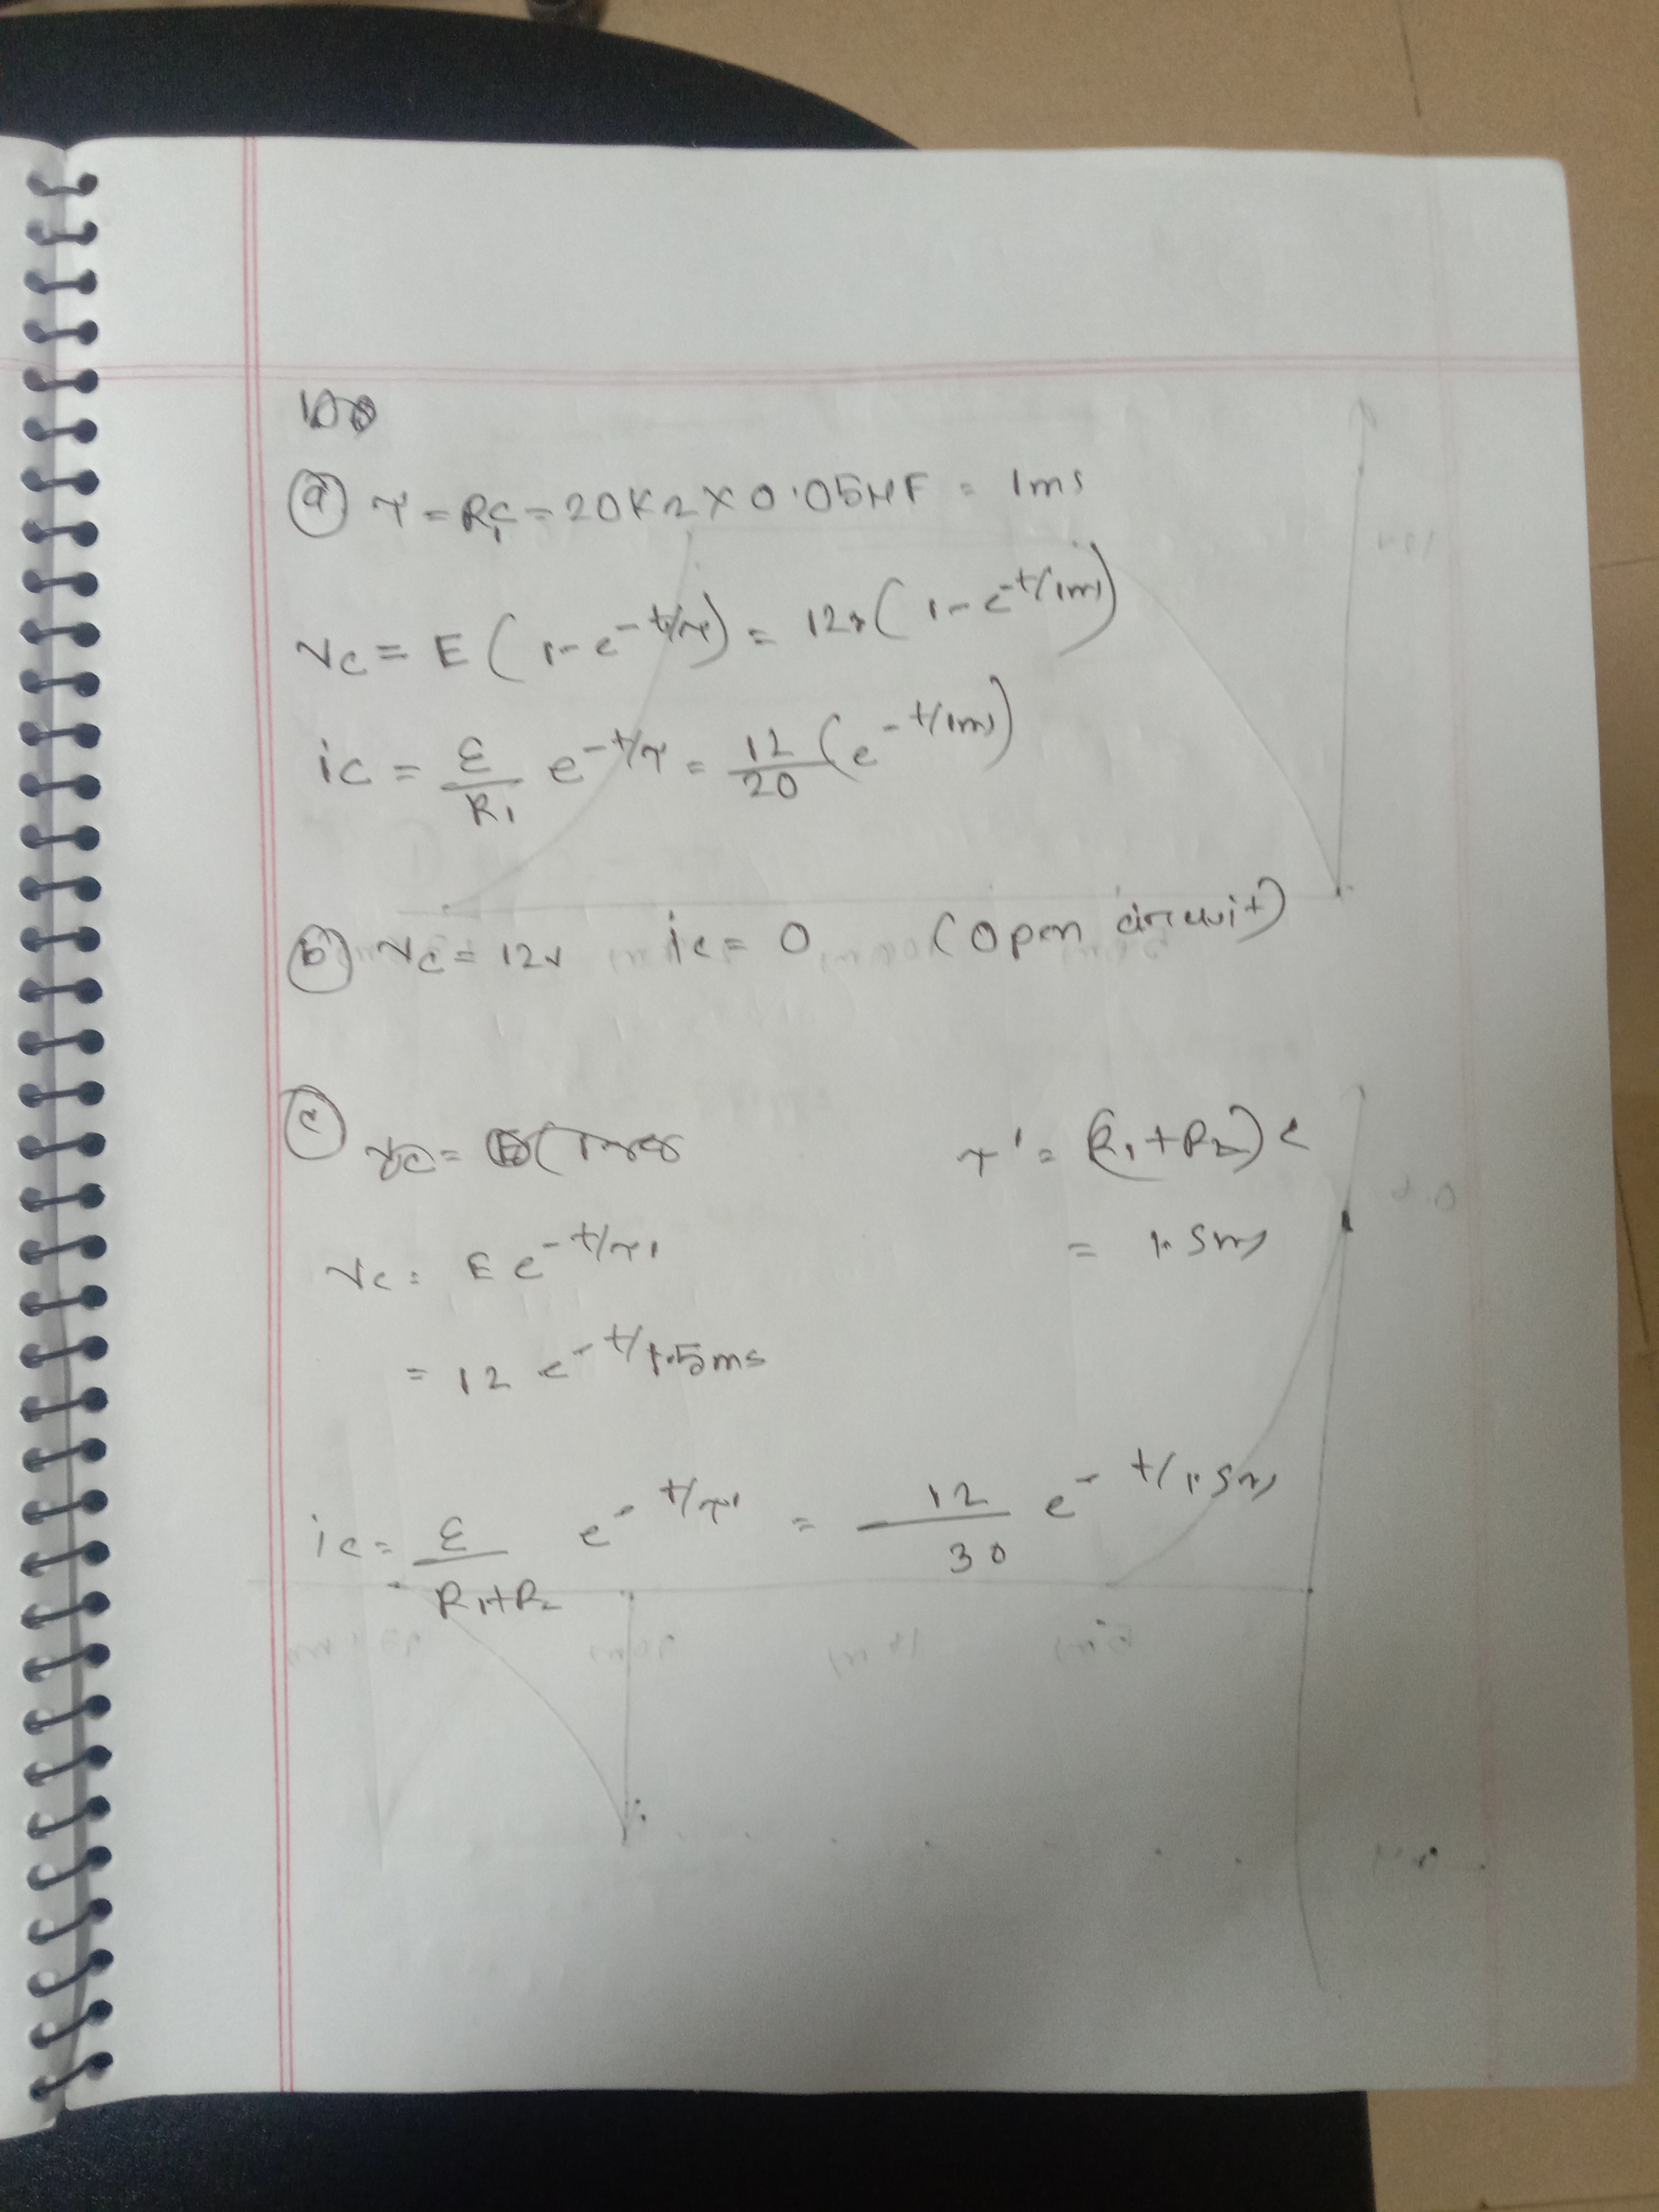 (a) τ = R₁C = 20KΩ × 0.05μF = 1ms
vc = E (1-e^-t/τ) = 12v (1-e^-t/1ms)
ic = E/R₁ e^-t/τ = 12/20 (e^-t/1ms)
(b) vc = 12v ic = 0 (Open circuit)
(c) vc = τ' = (R₁+R₂)C
vc = E e^-t/τ' = 1.5ms
= 12 e^-t/1.5ms
ic = E/R₁+R₂ e^-t/τ' = 12/30 e^-t/1.5ms